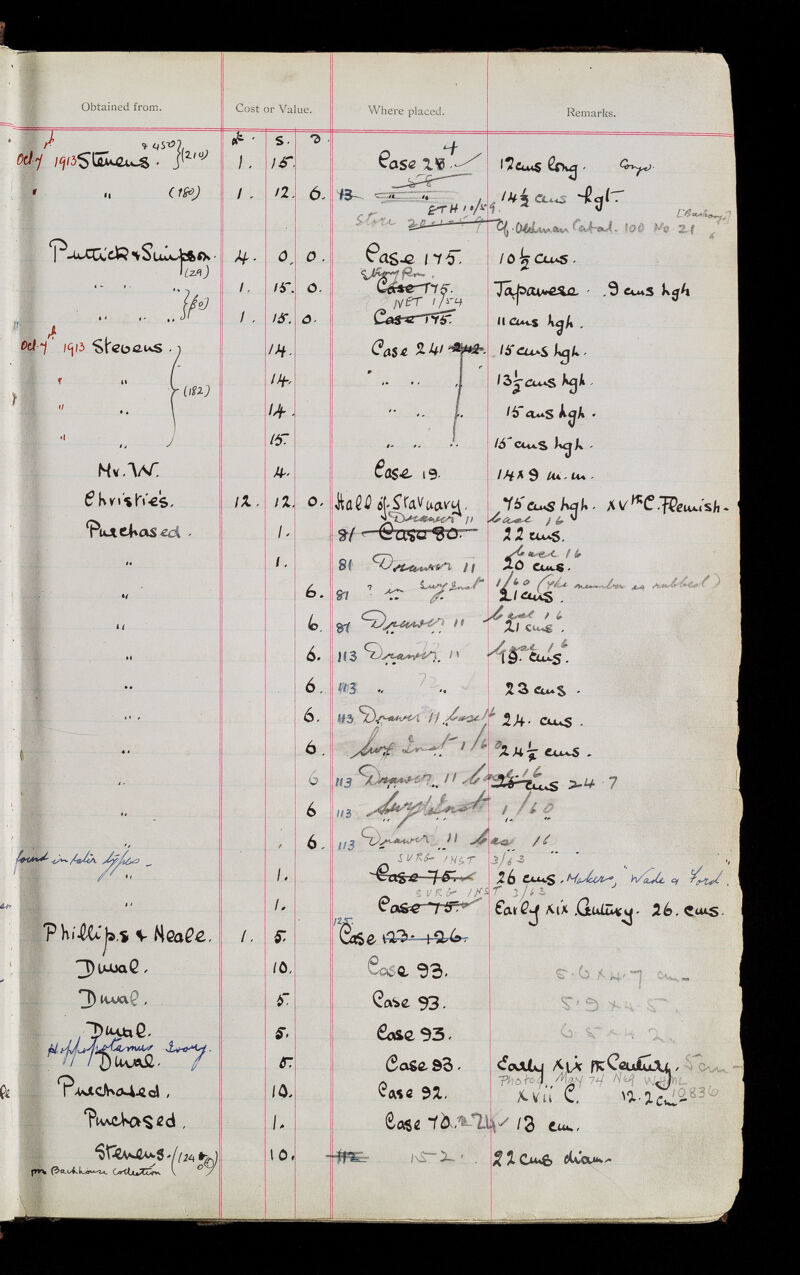 Obtained from. Cost or Value. Where placed. Remarks.
£. S. D.
Oct 7th 1913 Stevens. (210) & 450 1. 15. Case 28. 4 ✓ 12 cms long. Congo
" " (180) 1. 12. 6. 13 58 " " 14½ cms hgt.
ETH 10/59 [Bushongo]
Store Cf. Oldman Catal. 100 No 21
Puttick & Simpson. 4. 0. 0. Case 175. 10½ cms.
(29) Strong Rm.
" " " (80) 1. 15. 0. Case 175. Japanese. 9 cms hgh
NET 1/54
" " " 1. 15. 0. Case 175. 11 cms hgh.
Oct 7th 1913 Stevens. 14. Case 241 242. 15 cms hgh.
" " (182) 14. " " " 13½ cms hgh.
" " 14. " " " 15 cms hgh.
" " 15. " " " 15 cms hgh.
Mr. W. 4. Case 19. 14 x 9 m.m.
Christie's. 12. 12. 0. Hall of Statuary. 75 cms hgh. XVth C. Flemish.
Drawer 11 case 16
Purchased. 1. 81 Case 80. 22 cms.
case 16
" 1. 81 Drawer 11 20 cms.
1/60 (the number is rubbed)
" 6. 81 ? in Surg Inst 21 cms.
case 16
" 6. 81 Drawer 11 21 cms.
case 16
" 6. 113 Drawer 11 19. cms.
72 ✓
" 6. 113 " " 23 cms.
" 6. 113 Drawer 11 case 16 24. cms.
" 6. Surg Inst 1/60 24½ cms.
" 6 113 Drawer 11 case 16 25 cms 24.7
" 6 113 Surg Inst 1/60
" 6. 113 Drawer 11 cas 16
found in later types - SURG INST 3/63
1. Case 75. 26 cms. Makers, Wade & Ford.
SURG INST 3/63
" 1. Case 75. Early XIX Century. 26. cms.
125.
Phillips & Neale. 1. 5. Case 123. 126.
Duval. 10. Case 93. 5.6 x 4.7 cm
Duval. 5. Case 93. 5.9 x 4.5
Duval. 5. Case 93. 6.5 x 4.2
Hippopotamus Ivory.
Duval. 5. Case 93. Early XIXth Century. 5 cm
Photog. May 74 Neg WHML 10836
Purchased. 10. Case 92. XVII C. 12.2 cm
Purchased. 1. Case 70. 74 ✓ 13 cm.
Stevens. (124) 10. 112 152. 22 cms diam.
Backhouse Collection